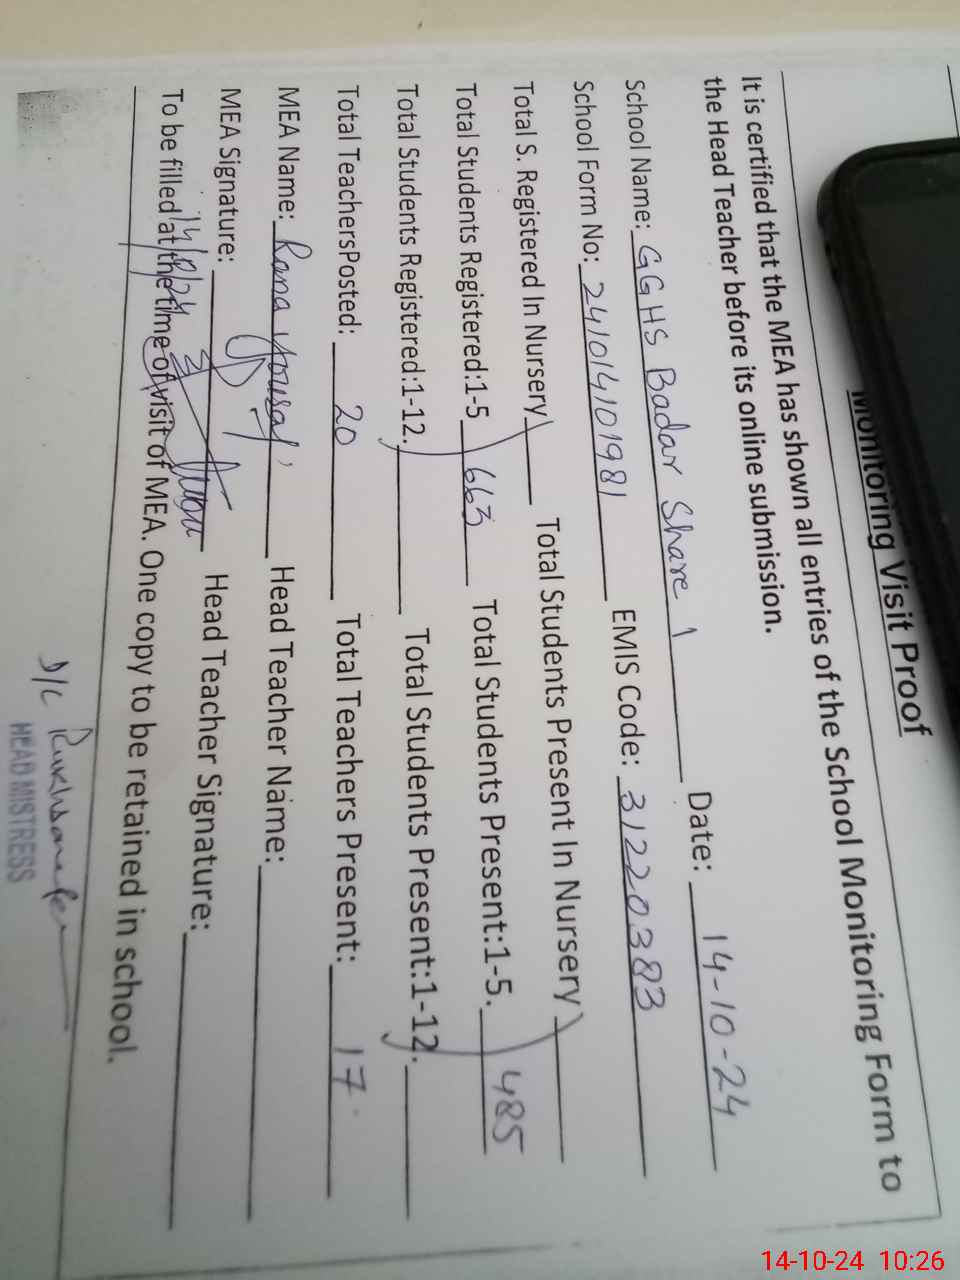 Monitoring Visit Proof
It is certified that the MEA has shown all entries of the School Monitoring Form to
the Head Teacher before its online submission.
School Name: GGHS Badar Share 1 Date: 14-10-24
School Form No: 241014101981 EMIS Code: 31220383
Total S. Registered In Nursery Total Students Present In Nursery
Total Students Registered:1-5 663 Total Students Present:1-5. 485
Total Students Registered:1-12. Total Students Present:1-12.
Total TeachersPosted: 20 Total Teachers Present: 17
MEA Name: Rana Yousaf Head Teacher Name:
MEA Signature: Head Teacher Signature:
To be filled at the time of visit of MEA. One copy to be retained in school.
D/C
HEAD MISTRESS
14-10-24 10:26